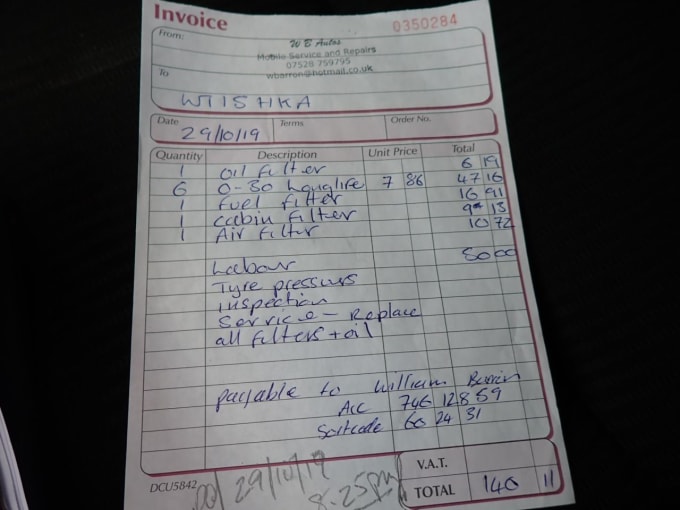 Invoice
0350284
From:
W B Autos
Mobile Service and Repairs
07528 759795
wbarron@hotmail.co.uk
To
Date Terms Order No.
29/10/19
Quantity Description Unit Price Total
1 Oil filter 6 19
6 0-30 Longlife 7 86 47 16
1 Fuel filter 16 91
1 Cabin filter 9 13
1 Air filter 10 72
Labour 50 00
Tyre pressures
inspection
Service - Replace
all filters + oil
payable to William Barron
Acc 746 128 59
Sortcode 60 24 31
DCU5842
29/10/19
8.25pm
V.A.T.
TOTAL 140 11